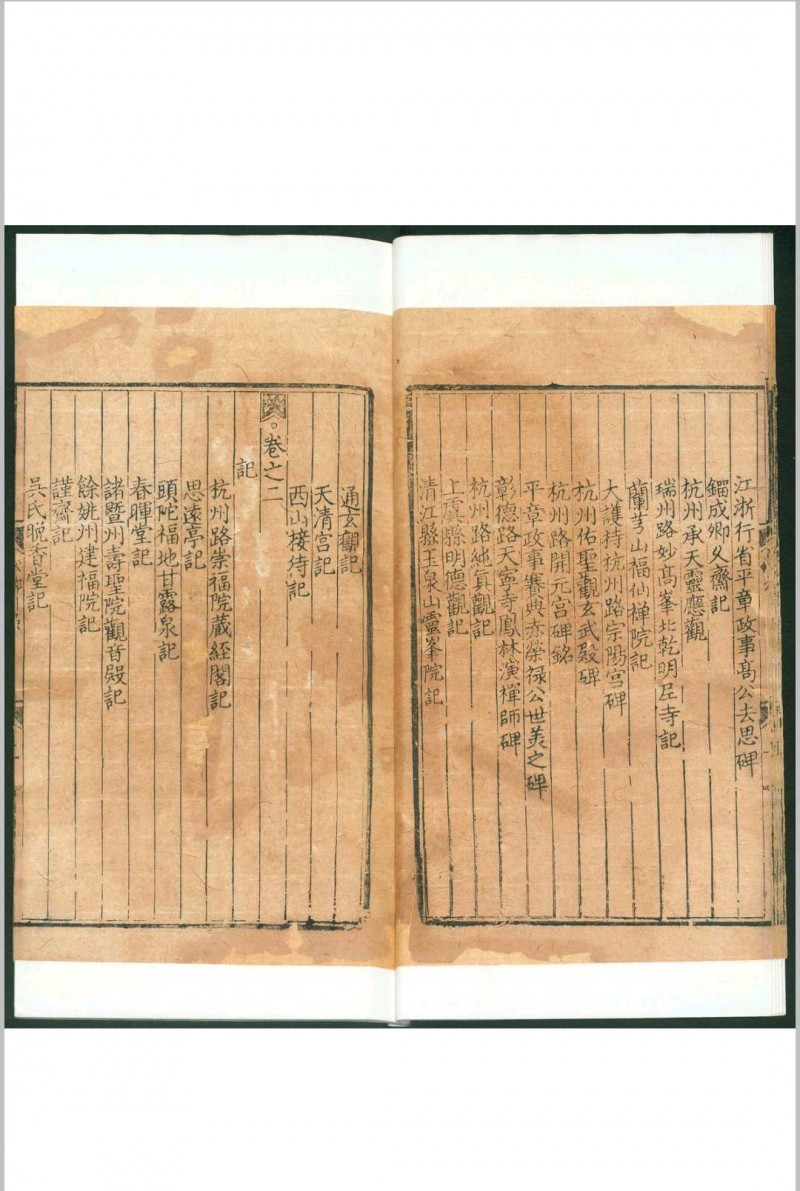 江浙行省平章政事高公去思碑
鎦成卿久齋記
杭州承天靈應觀
瑞州路妙高峯北乾明尼寺記
蘭芎山福仙禅院記
大護持杭州路宗陽宮碑
杭州佑聖觀玄武殿碑
杭州路開元宫碑銘
平章政事賽典赤榮禄公世美之碑
彰德路天寧寺鳳林演禪師碑
杭州路純真觀記
上虞縣明德觀記
清江縣玉泉山靈峯院記
通玄觀記
天清宫記
西山接待記
卷之二
記
杭州路崇福院蔵經閣記
思遠亭記
頭陀福地甘露泉記
春暉堂記
諸暨州壽聖院觀音殿記
餘姚州建福院記
謹齋記
吳氏晚香堂記